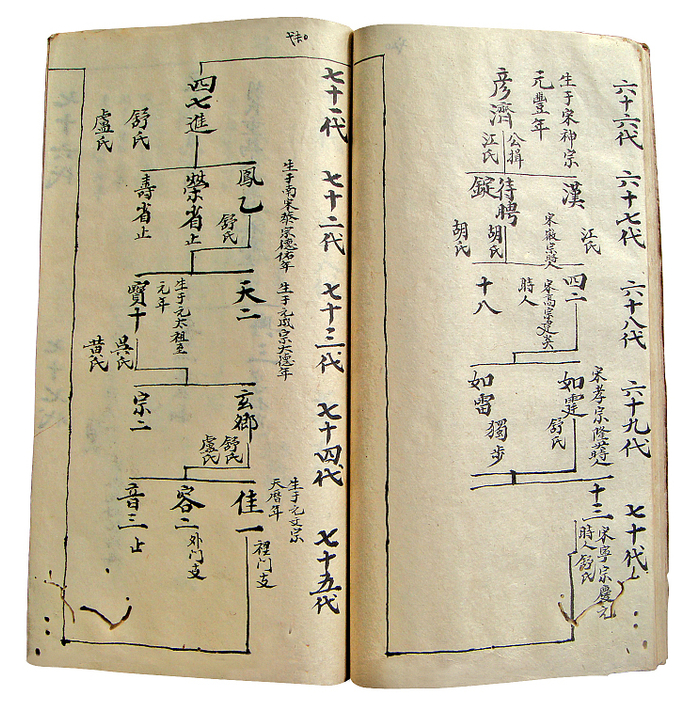 六十六代
生于宋神宗
元豐年
彦濟
公揖
江氏
六十七代
漢
江氏
宋徽宗時人
待聘
胡氏
錠
胡氏
六十八代
四二
宋高宗建炎
時人
十八
六十九代
宋孝宗隆興時人
如霆
舒氏
如雷
獨步
七十代
十三
宋寧宗慶元
時人
舒氏
七十一代
四七進
舒氏
盧氏
七十二代
生于南宋恭宗德佑年
鳳乙
舒氏
榮省止
壽省止
七十三代
生于元成宗大德年
天二
生于元太祖至
元年
寶十
吳氏
黃氏
七十四代
玄鄉
舒氏
盧氏
宗二
七十五代
生于元文宗
天曆年
佳一
裡门支
容二
外门支
音三止